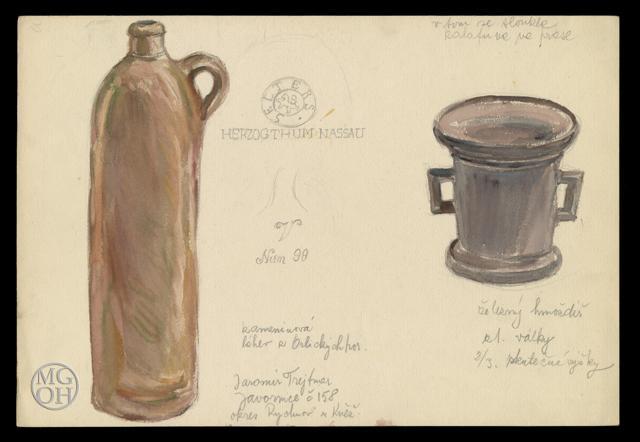 v tom se tloukla
kalafuna na prase
SELTERS
HERZOGTHUM NASSAU
Num 99
kameninová
láhev z Orlických hor.
Jaromír Trejtnar
Javornice č 158
okres Rychnov n Kněž.
železný hmoždíř
st. války
2/3. skutečné výšky
MG
OH